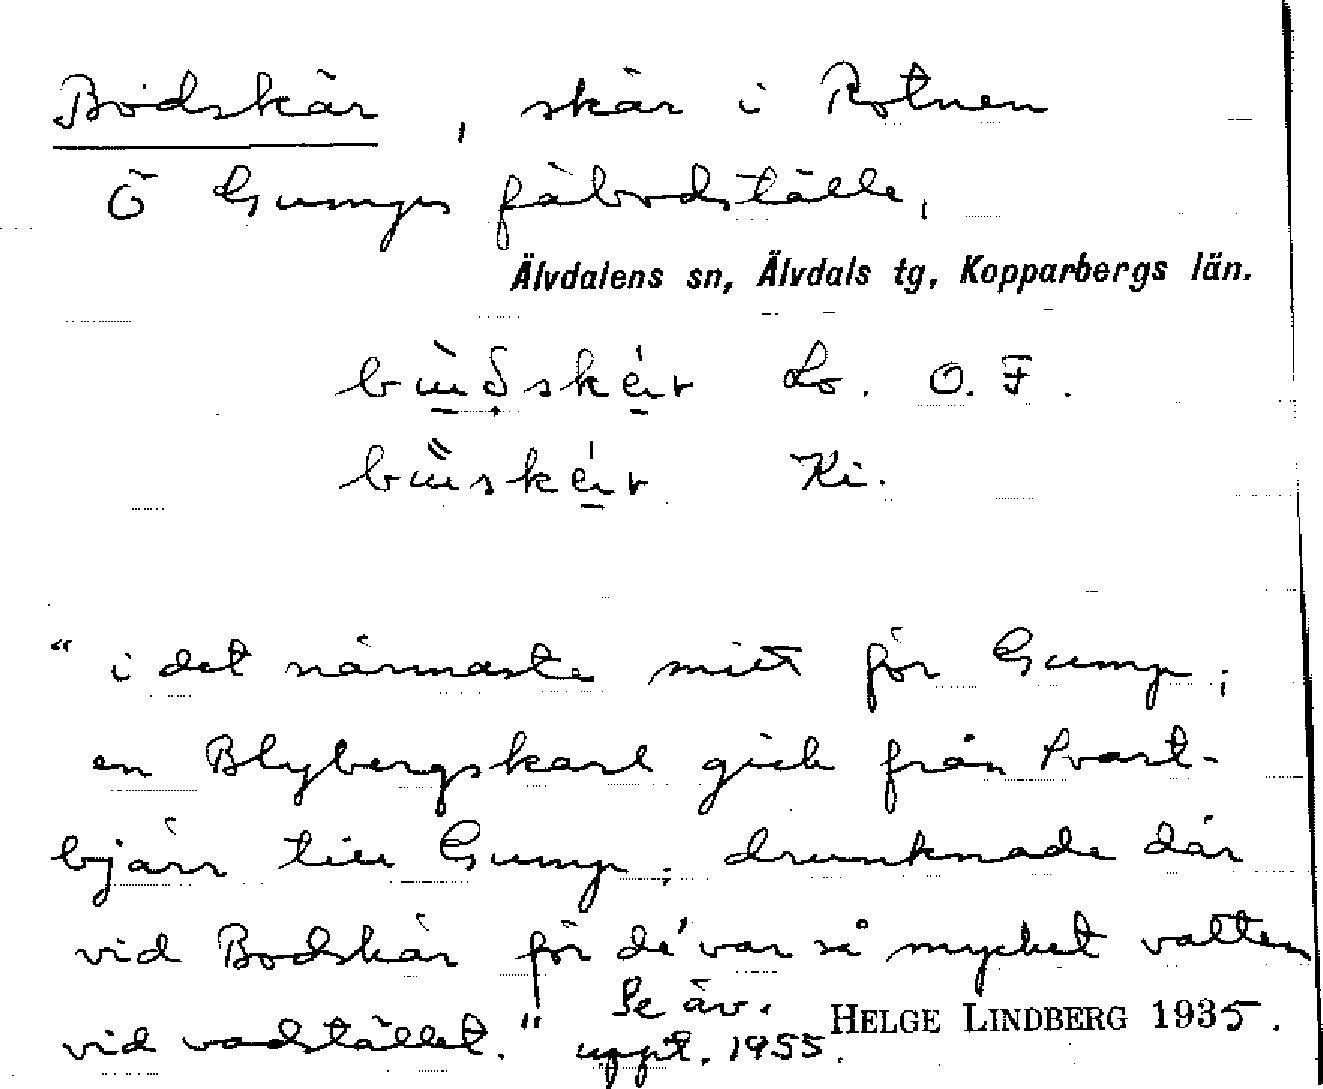 Bodskär, skär i Rotnen
Ö Gumps fäbodställe,
Älvdalens sn, Älvdals tg, Kopparbergs län.
Lo. O. F.
Ki.
" i det närmaste mitt för Gump;
en Blybergskarl gick från Svart-
bjärr till Gump; drunknade där
vid Bodskär för de' var så mycket vatten
vid vadstället." Se äv.
uppt. 1955. HELGE LINDBERG 1935.